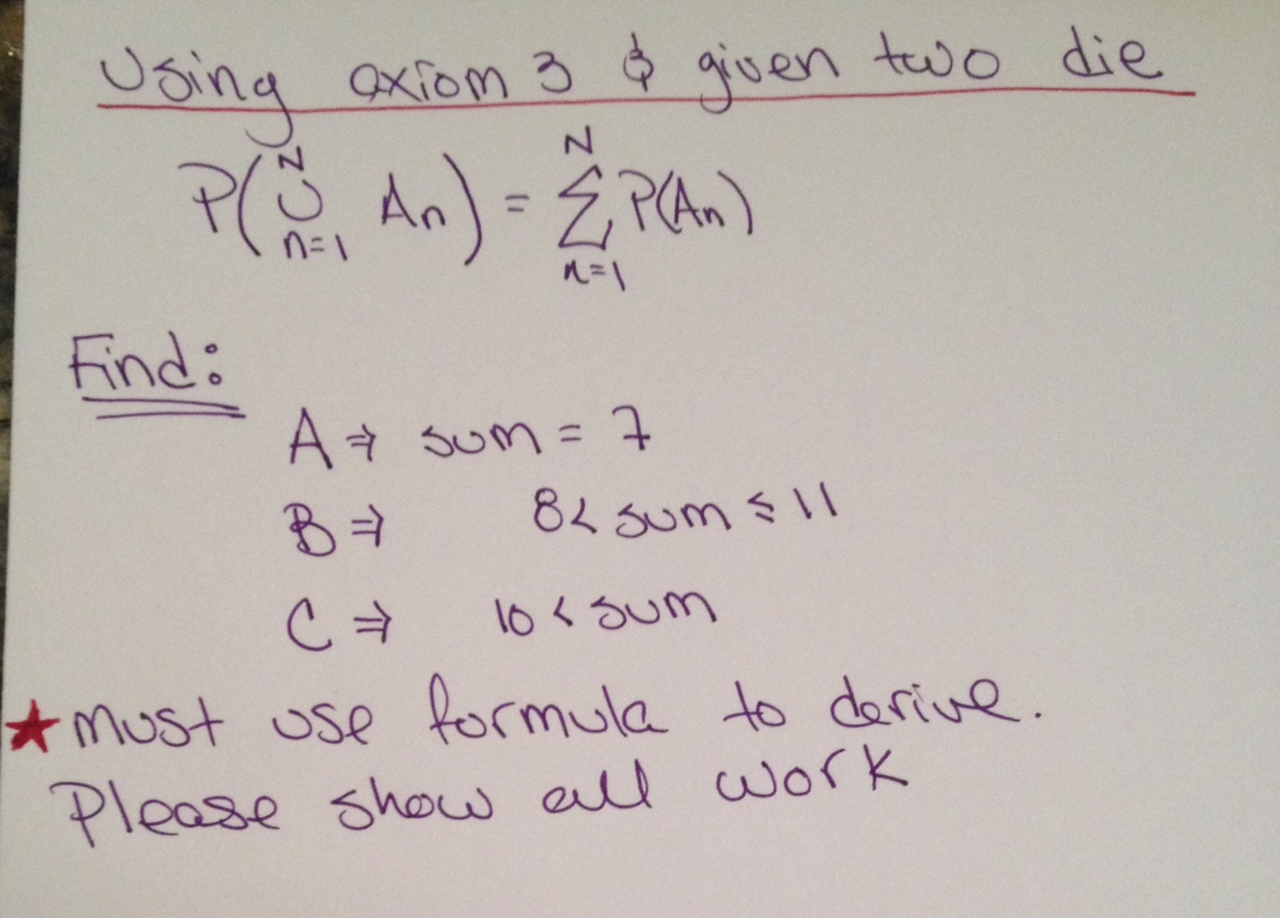 Using axiom 3 & given two die
P(∪ₙ₌₁ᴺ Aₙ) = ∑ₙ₌₁ᴺ P(Aₙ)
Find:
A ⇒ sum = 7
B ⇒ 8 < sum ≤ 11
C ⇒ 10 < sum
★ must use formula to derive.
Please show all work